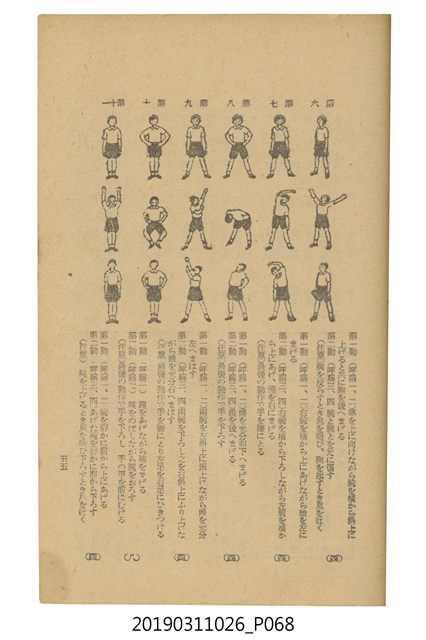 第六
第七
第八
第九
第十
第十一
第一動(呼稱一、二)掌を上に向けながら腕を横から斜上に
上げると共に胸を後へまげる
第二動(呼稱三、四)腕と胸とを元に復す
(注意)胸を反らすとき息を吸ひ、胸を起すとき息を吐く
(四)
第一動(呼稱一、二)右腕を横から上にあげながら體を左に
まげる
第二動(呼稱三、四)右腕を横から下ろしながら左腕を横か
ら上にあげ、體を右にまげる
(注意)最後の動作で手を腰にとる
(四)
第一動(呼稱一、二)上體を充分前下へまげる
第二動(呼稱三、四)上體を後へまげる
(四)
第一動(呼稱一、二)兩腕を左斜上に振上げながら體を充分
左へまはす
第二動(呼稱三、四)兩腕を下ろし之を右斜上にふり上げな
がら體を充分右へまはす
(注意)最後の動作で手を腰にとり左足を右足にひきつける
(四)
第一動(呼稱一)踵をあげながら膝をまげる
第二動(呼稱二)膝をのばしながら踵をおろす
(注意)最後の動作で手を下ろし、手の甲を前にむける
(八)
第一動(呼稱一、二)腕を前から上にあげる
第二動(呼稱三、四)あげた腕を前から下ろす
(注意)腕を上げるとき息を吸ひ下ろすとき息を吐く
(四)
五五
20190311026_P068